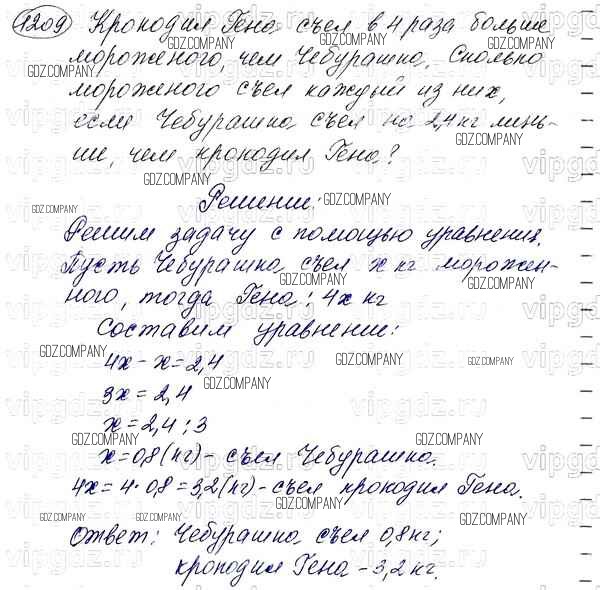 1209 Крокодил Гена съел в 4 раза больше
мороженого, чем Чебурашка. Сколько
мороженого съел каждый из них,
если Чебурашка съел на 2,4 кг мень-
ше, чем крокодил Гена?
Решение:
Решим задачу с помощью уравнения.
Пусть Чебурашка съел x кг морожен-
ного, тогда Гена: 4x кг
Составим уравнение:
4x - x = 2,4
3x = 2,4
x = 2,4 : 3
x = 0,8 (кг) - съел Чебурашка.
4x = 4 · 0,8 = 3,2 (кг) - съел крокодил Гена.
Ответ: Чебурашка съел 0,8 кг;
крокодил Гена - 3,2 кг.
GDZ.COMPANY
vipgdz.ru